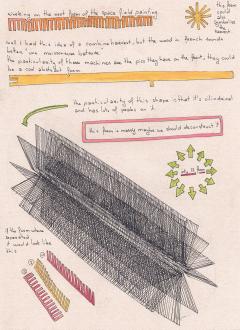 working on the next form of the space field painting.
this form
could
also
be
the
harvest
well I had this idea of a combine harvest, but the word in french sounds
better "une moissonneuse batteuse".
The particularity of these machines are the pics they have on the front, they could
be a cool abstract form
The particularity of this shape is that it's cilinderical
and has lots of peaks on it.
this form is messy maybe we should deconstruct it
if the form where
seperated
it would look like
this